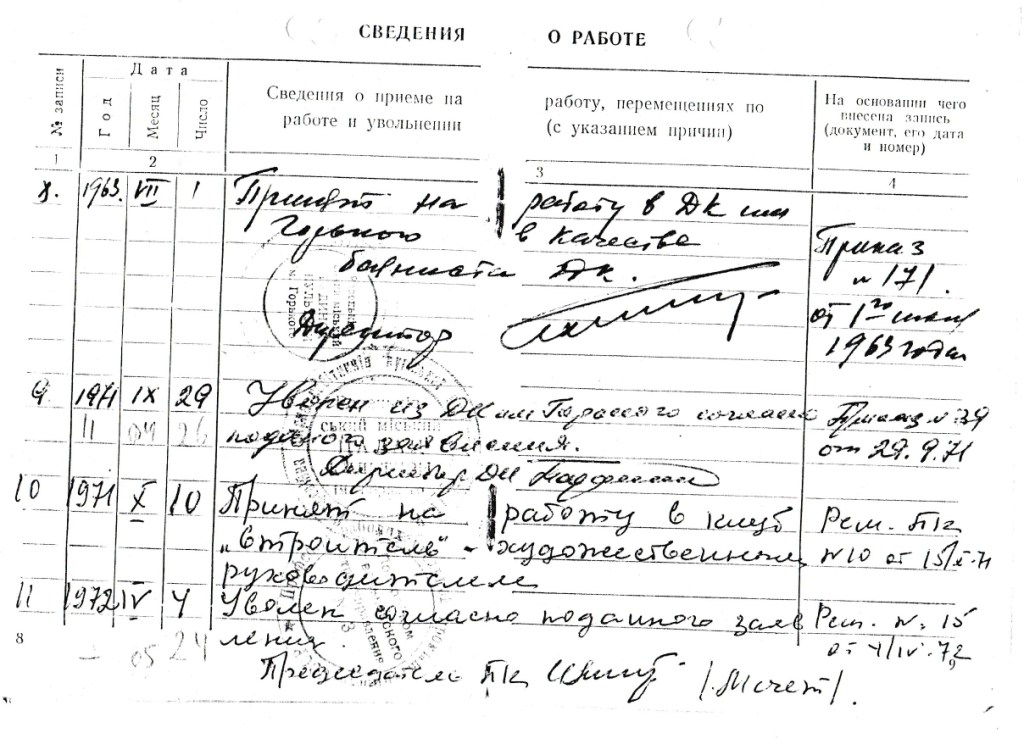 СВЕДЕНИЯ О РАБОТЕ
№ записи
Дата
Год
Месяц
Число
Сведения о приеме на работу, перемещениях по
работе и увольнении (с указанием причин)
На основании чего
внесена запись
(документ, его дата
и номер)
1 2 3 4
8. 1963. VII 1 Принят на работу в ДК им
Горького в качестве
баяниста ДК.
Директор
Приказ
№ 171.
от 1го июля
1963 года
9 1971 IX 29 Уволен из ДК им Горького согласно
поданого заявления.
Директор ДК
Приказ № 29
от 29.9.71
10 1971 X 10 Принят на работу в клуб
„Строитель" - художественным
руководителем
Реш. ПК
№ 10 от
11 1972 IV 4 Уволен согласно поданного заяв
ления.
Реш. № 15
от 4/IV-72
11 04 26
- 05 24
Председатель ПК
8